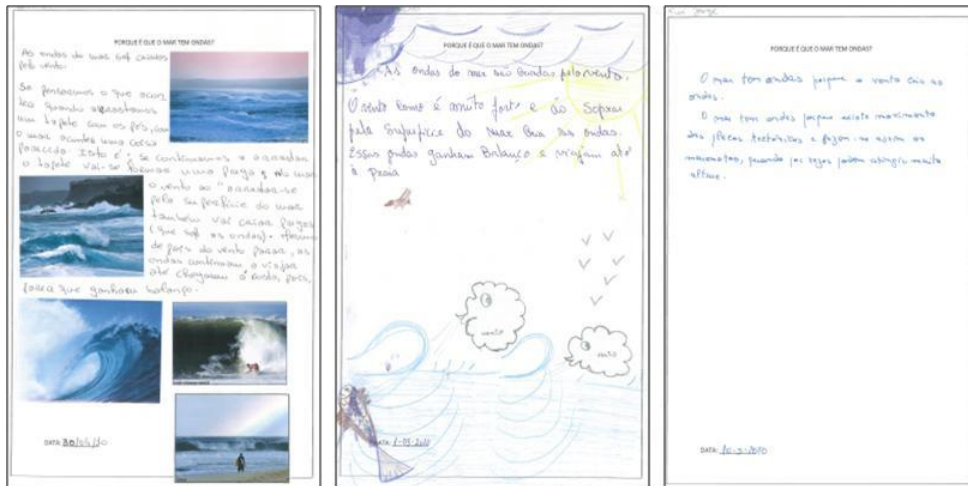 PORQUE É QUE O MAR TEM ONDAS?
As ondas do mar são criadas
pelo vento.
Se pensarmos o que acon-
tece quando arrastamos
um tapete com os pés, com
o mar acontece uma coisa
parecida. Isto é, se continuarmos a arrastar
o tapete vai-se formar uma prega e no mar
o vento ao "arrastar-se
pela superfície do mar
também vai criar pregas
(que são as ondas). Mesmo
depois do vento parar, as
ondas continuam a viajar
até chegarem à costa, pois,
parece que ganharam balanço.
DATA: 30/04/10
PORQUE É QUE O MAR TEM ONDAS?
As ondas do mar são criadas pelo vento.
O vento é muito forte e ao soprar
pela superfície do mar cria as ondas.
Essas ondas ganham Balanço e viajam até
à praia
vento
vento
DATA:
PORQUE É QUE O MAR TEM ONDAS?
O mar tem ondas porque o vento cria as
ondas.
O mar tem ondas porque existe movimento
das placas tectónicas e fazem-se assim os
maremotos, quando por vezes podem atingir muita
altura.
DATA: